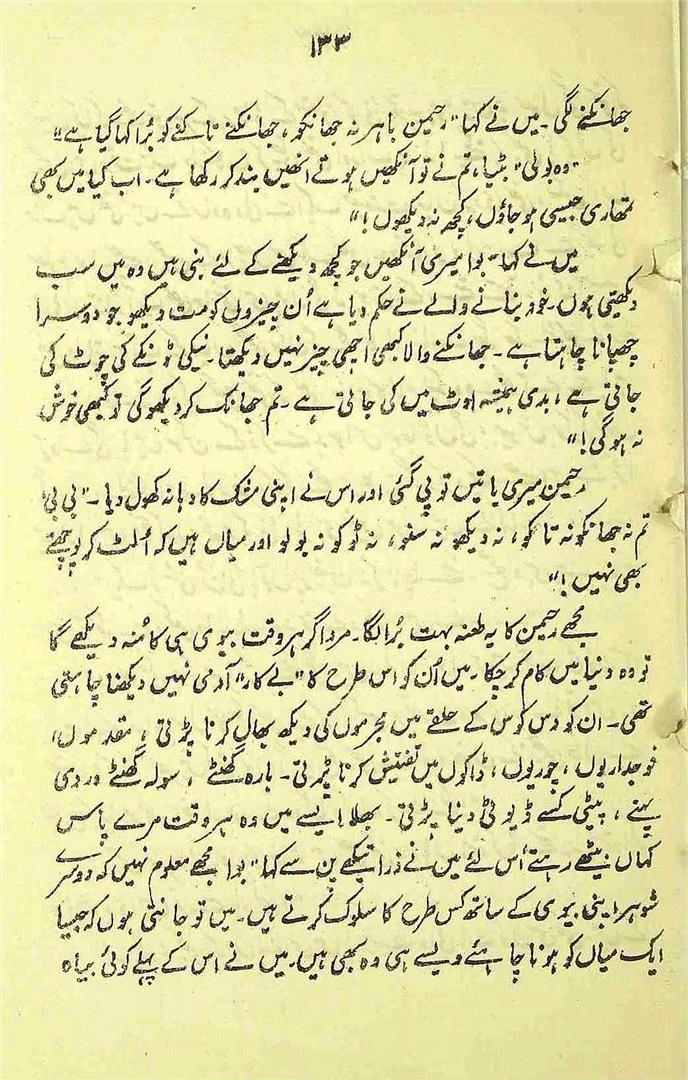 ۱۳۳
جھانکنے لگی۔ میں نے کہا "رحیمن باہر نہ جھانکو، جھانکنے تاکنے کو بُرا کہا گیا ہے"
"وہ بولی" بٹیا، تم نے تو آنکھیں ہوتے انھیں بند کر رکھا ہے۔ اب کیا میں بھی
تمھاری جیسی ہو جاؤں، کچھ نہ دیکھوں!"
میں نے کہا۔ "بوا میری آنکھیں جو کچھ دیکھنے کے لئے بنی ہیں وہ میں سب
دیکھتی ہوں۔ خود بنانے والے نے حکم دیا ہے اُن چیزوں کو مت دیکھو جو دوسرا
چھپانا چاہتا ہے۔ جھانکنے والا کبھی اچھی چیز نہیں دیکھتا۔ نیکی ڈنکے کی چوٹ کی
جاتی ہے، بدی ہمیشہ اوٹ میں کی جاتی ہے۔ تم جھانک کر دیکھو گی تو کبھی خوش
نہ ہو گی!"
رحیمن میری باتیں تو پی گئی اور اس نے اپنی مشک کا دہانہ کھول دیا۔ "بی بی
تم نہ جھانکو نہ تاکو، نہ دیکھو نہ سنو، نہ ٹوکو نہ بولو اور میاں ہیں کہ اُلٹ کر پوچھتے
بھی نہیں!"
مجھے رحیمن کا یہ طعنہ بہت بُرا لگا۔ مرد اگر ہر وقت بیوی ہی کا مُنہ دیکھے گا
تو وہ دنیا میں کام کر چکا۔ میں اُن کو اس طرح کا "بے کار" آدمی نہیں دیکھنا چاہتی
تھی۔ ان کو دس کوس کے حلقے میں مجرموں کی دیکھ بھال کرنا پڑتی، مقدموں،
فوجداریوں، چوریوں، ڈاکوں میں تفتیش کرنا پڑتی۔ بارہ گھنٹے، سولہ گھنٹے وردی
پہنے، پیٹی کسے ڈیوٹی دینا پڑتی۔ بھلا ایسے میں وہ ہر وقت مرے پاس
کہاں بیٹھے رہتے اُس لئے میں نے ذرا تیکھے پن سے کہا "بوا مجھے معلوم نہیں کہ دوسرے
شوہر اپنی بیوی کے ساتھ کس طرح کا سلوک کرتے ہیں۔ میں تو جانتی ہوں کہ جیسا
ایک میاں کو ہونا چاہئے ویسے ہی وہ بھی ہیں۔ میں نے اس کے پہلے کوئی بیاہ